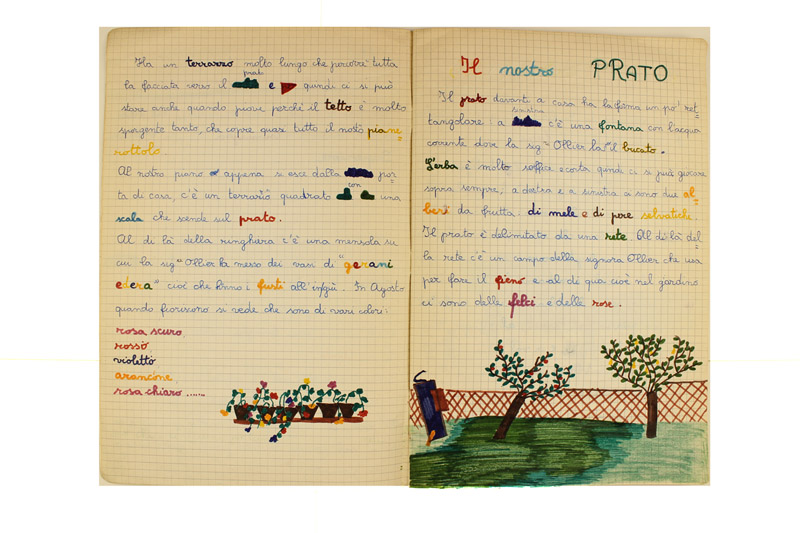 Ha un terrazzo molto lungo che percorre tutta
prato
la facciata verso il e quindi ci si può
stare anche quando piove perchè il tetto è molto
sporgente tanto, che copre quasi tutto il nostro piane=
rottolo.
Al nostro piano appena si esce dalla por=
con
ta di casa, c'è un terrazzo quadrato una
scala che scende sul prato.
Al di là della ringhiera c'è una mensola su
cui la sig.ra Ollier ha messo dei vasi di "gerani
edera" cioè che hanno i fusti all'ingiù. In Agosto
quando fioriscono si vede che sono di vari colori:
rosa scuro,
rosso
violetto
arancione,
rosa chiaro ......
Il nostro PRATO
Il prato davanti a casa ha la forma un po' ret=
sinistra
tangolare: a c'è una fontana con l'acqua
corrente dove la sig.ra Ollier fa il bucato.
L'erba è molto soffice e corta quindi ci si può giocare
sopra sempre, a destra e a sinistra ci sono due al=
beri da frutta, di mele e di pere selvatiche.
Il prato è delimitato da una rete. Al di là del
la rete c'è un campo della signora Ollier che usa
per fare il fieno e al di qua cioè nel giardino
ci sono delle felci e delle rose.